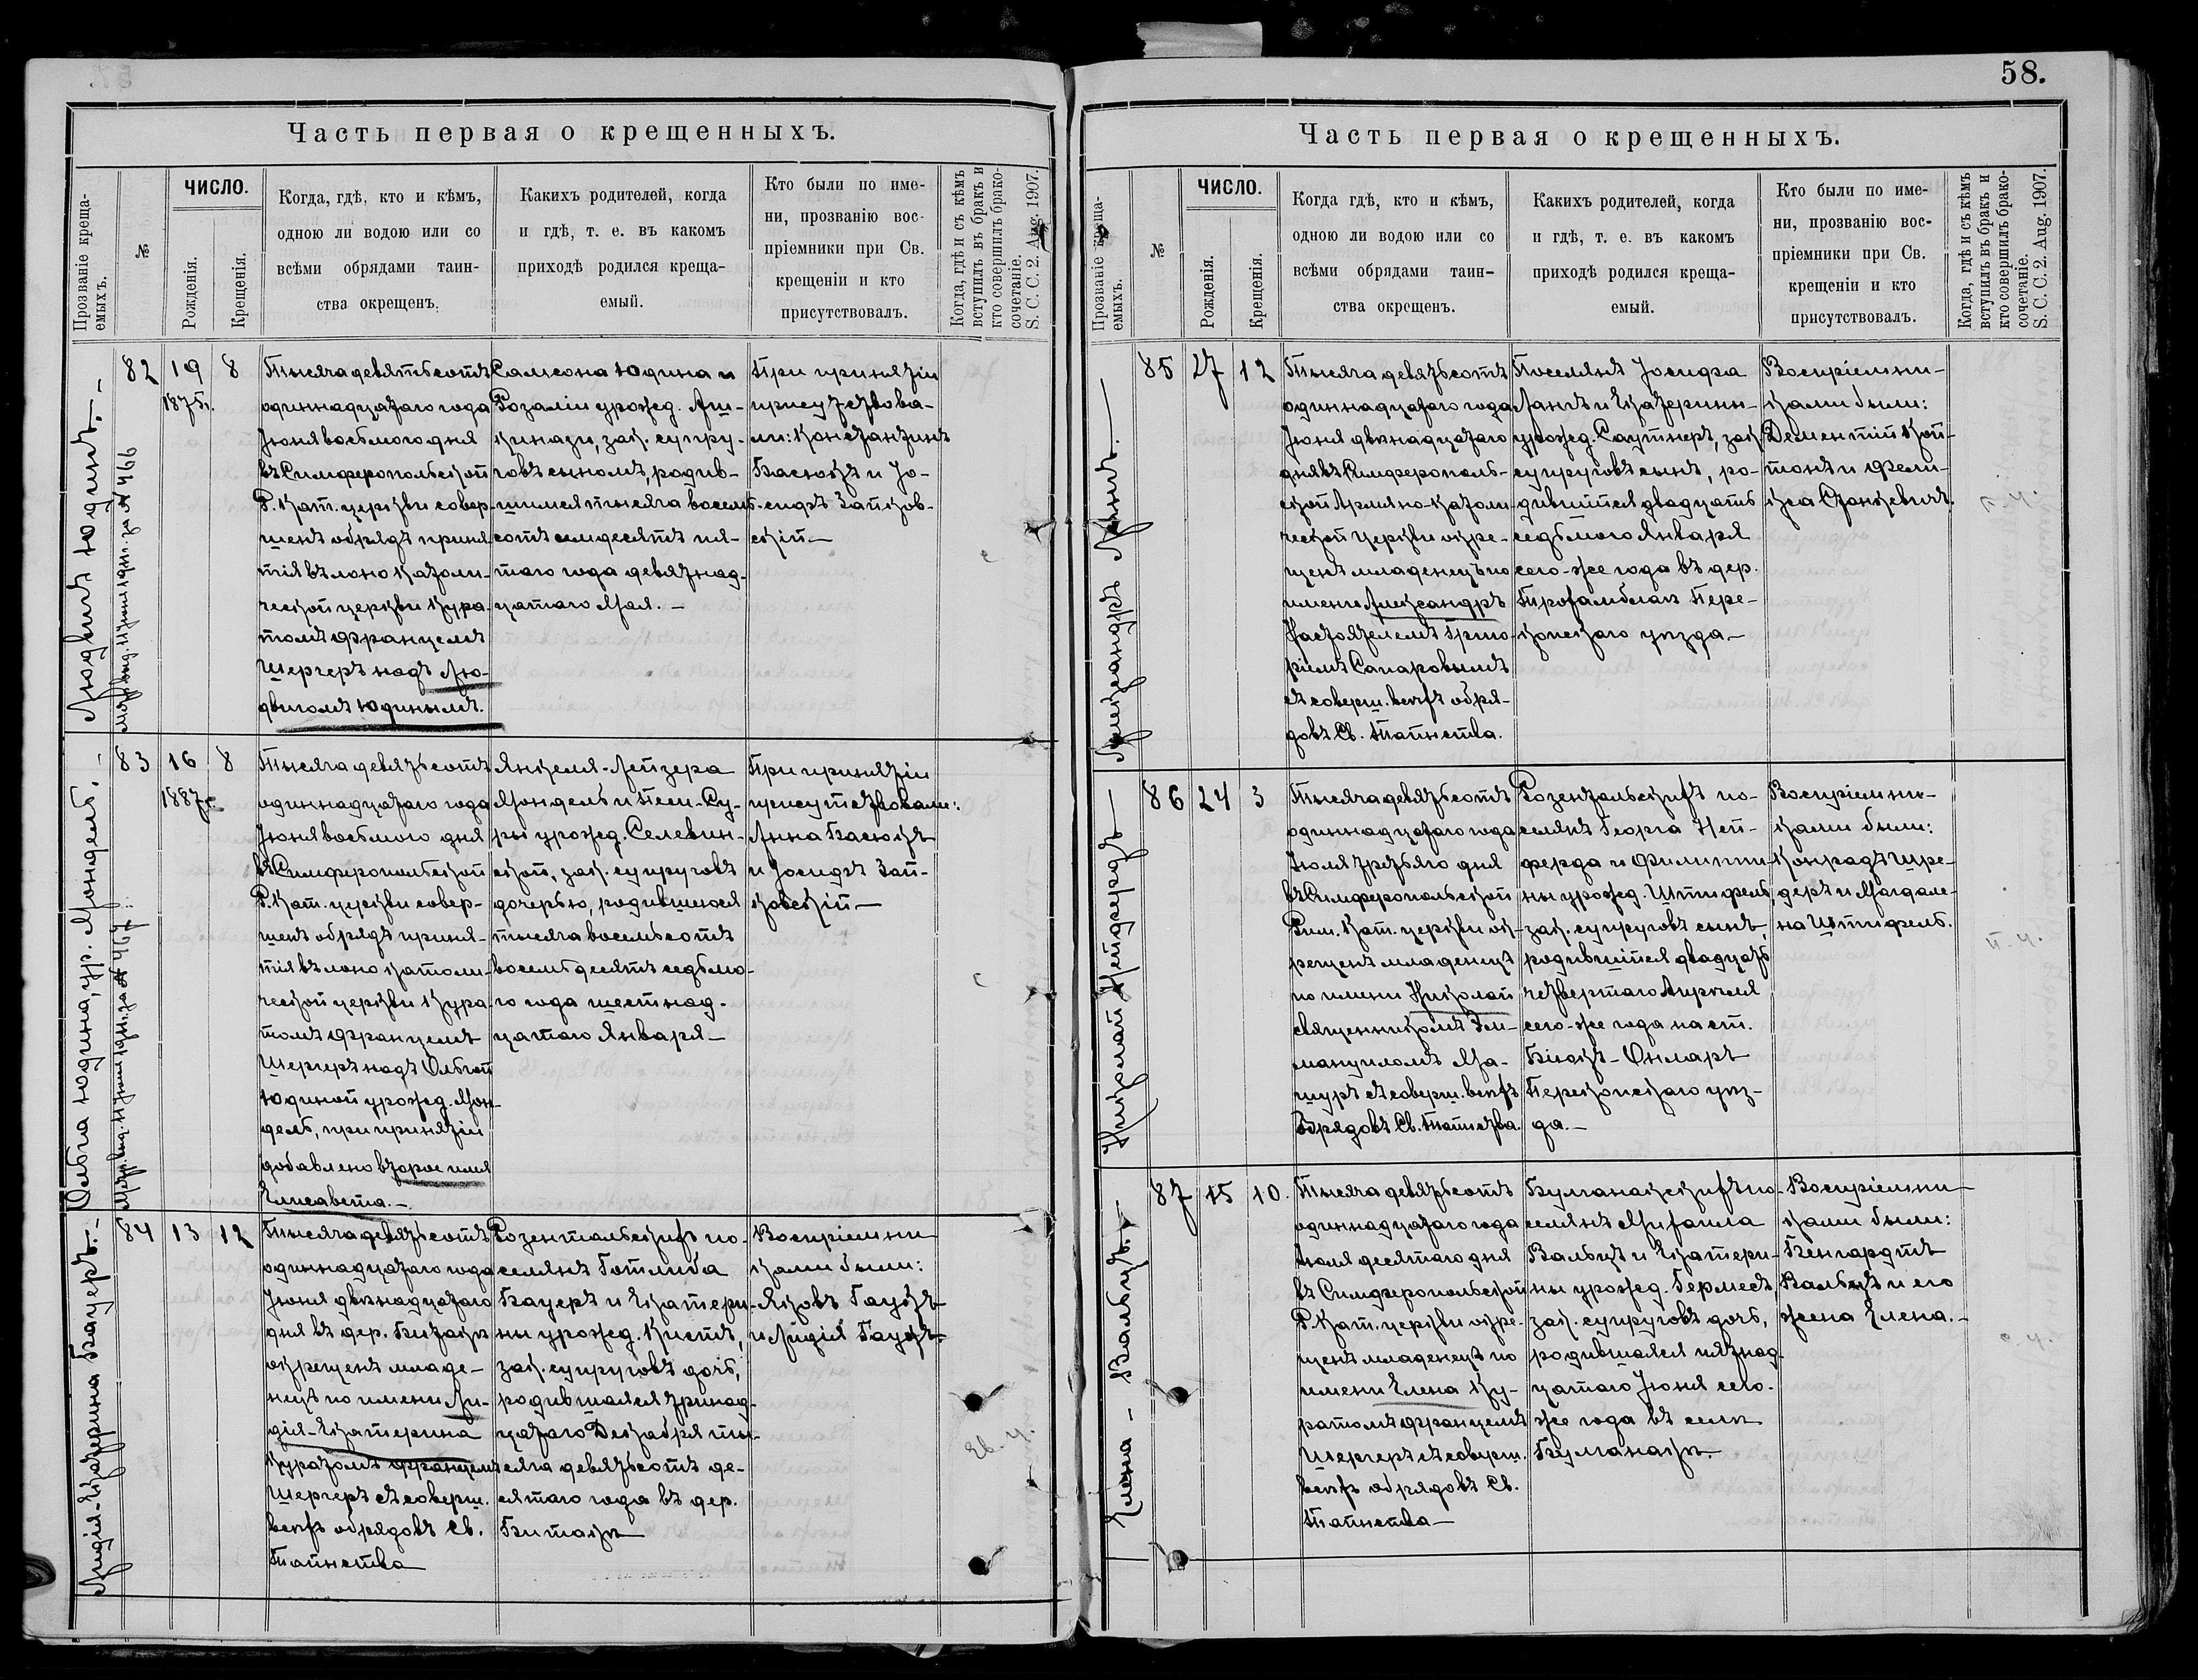 58.
Часть первая о крещенныхъ.
Прозваніе креща-
емыхъ.
№
ЧИСЛО.
Рожденія.
Крещенія.
Когда, гдѣ, кто и кѣмъ,
одною ли водою или со
всѣми обрядами таин-
ства окрещенъ.
Какихъ родителей, когда
и гдѣ, т. е. въ какомъ
приходѣ родился креща-
емый.
Кто были по име-
ни, прозванію вос-
пріемники при Св.
крещеніи и кто
присутствовалъ.
Когда, гдѣ и съ кѣмъ
вступилъ въ бракъ и
кто совершилъ брако-
сочетаніе.
S. C. C. 2. Aug. 1907.
Людвигъ Юдинъ.
Метр. выд. 11 Іюня 1911 г. за № 466
82
19
1875 г.
8
Тысяча девятьсотъ
одиннадцатаго года
Іюня восьмого дня
въ Симферопольской
Р. Кат. церкви совер-
шенъ обрядъ приня-
тія въ лоно католи-
ческой церкви кура-
томъ Францемъ
Шергеръ надъ Лю-
двигомъ Юдинымъ.
Самсона Юдина и
Розаліи урожд. Аш-
кинази, зак. супру-
говъ сыномъ, родив-
шимся тысяча восемь-
сотъ семдесятъ пя-
таго года девятнад-
цатаго Мая.
При принятіи
присутствова-
ли: Константинъ
Басюкъ и Іо-
сифъ Запков-
скій
Ольга Юдина, ур. Мондель.
Метр. выд. 11 Іюня 1911 г. за № 467
83
16
1887 г.
8
Тысяча девятьсотъ
одиннадцатаго года
Іюня восьмого дня
въ Симферопольской
Р. Кат. церкви совер-
шенъ обрядъ приня-
тія въ лоно католи-
ческой церкви кура-
томъ Францемъ
Шергеръ надъ Ольгой
Юдиной урожд. Мон-
дель, при принятіи
добавлено второе имя
Елисавета.
Янкеля-Лейзера
Мондель и Песи-Су-
ры урожд. Селевин-
ской, зак. супруговъ
дочерью, родившеюся
тысяча восемьсотъ
восемьдесятъ седьмо-
го года шестнад-
цатаго Января
При принятіи
присутствовали:
Анна Басюкъ
и Іосифъ Зап-
ковскій
Лидія-Екатерина Бауеръ.
84
13
12
Тысяча девятьсотъ
одиннадцатаго года
Іюня двѣнадцатаго
дня въ дер. Битакъ
окрещенъ младе-
нецъ по имени Ли-
дія-Екатерина
куратомъ Францемъ
Шергеръ съ соверш.
всѣхъ обрядовъ Св.
Таинства
Розентальскихъ по-
селянъ Готлиба
Бауеръ и Екатери-
ны урожд. Кистъ,
зак. супруговъ дочь,
родившаяся тринад-
цатаго Декабря ты-
сяча девятьсотъ де-
сятаго года въ дер.
Битакъ
Воспріемни-
ками были:
Яковъ Гаукъ
и Лидія Гаукъ
Ев. ч.
Часть первая о крещенныхъ.
Прозваніе креща-
емыхъ.
№
ЧИСЛО.
Рожденія.
Крещенія.
Когда гдѣ, кто и кѣмъ,
одною ли водою или со
всѣми обрядами таин-
ства окрещенъ.
Какихъ родителей, когда
и гдѣ, т. е. въ какомъ
приходѣ родился креща-
емый.
Кто были по име-
ни, прозванію вос-
пріемники при Св.
крещеніи и кто
присутствовалъ.
Когда, гдѣ и съ кѣмъ
вступилъ въ бракъ и
кто совершилъ брако-
сочетаніе.
S. C. C. 2. Aug. 1907.
Александръ Лангъ.
85
27
12
Тысяча девятьсотъ
одиннадцатаго года
Іюня двѣнадцатаго
дня въ Симферополь-
ской Армяно-католи-
ческой церкви окре-
щенъ младенецъ по
имени Александръ
Настоятелемъ Григо-
ріемъ Сапаровымъ
съ соверш. всѣхъ обря-
довъ Св. Таинства.
Поселянъ Іосифа
Лангъ и Екатерины
урожд. Саутнеръ, зак.
супруговъ сынъ, ро-
дившійся двадцать
седьмого Января
сего-же года въ дер.
Перекопскаго уѣзда
Воспріемни-
ками были:
Дементій Коп-
тонъ и Фели-
кса Станкевичъ.
п. ч.
Николай Нейфердъ
86
24
3
Тысяча девятьсотъ
одиннадцатаго года
Іюля третьяго дня
въ Симферопольской
Рим. Кат. церкви ок-
рещенъ младенецъ
по имени Николай
священникомъ Эм-
мануиломъ Ма-
шуръ съ соверш. всѣхъ
обрядовъ Св. Таинства.
Розентальскихъ по-
селянъ Георга Ней-
ферда и Филиппи-
ны урожд. Штифель,
зак. супруговъ сынъ,
родившійся двадцать
четвертаго Апрѣля
сего-же года на ст.
Біюкъ-Онларъ
Перекопскаго уѣз-
да.
Воспріемни-
ками были:
Конрадъ Шре-
деръ и Магдале-
на Штифель.
п. ч.
Елена Вальбуцъ.
87
15
10.
Тысяча девятьсотъ
одиннадцатаго года
Іюля десятаго дня
въ Симферопольской
Р. Кат. церкви окре-
щенъ младенецъ по
имени Елена ку-
ратомъ Францемъ
Шергеръ съ соверш.
всѣхъ обрядовъ Св.
Таинства
Булганакскихъ по-
селянъ Михаила
Вальбуцъ и Екатери-
ны урожд. Гермесъ
зак. супруговъ дочь,
родившаяся пятнад-
цатаго Іюня сего-
же года въ селѣ
Булганакъ.
Воспріемни-
ками были:
Бенгардтъ
Вальбуцъ и его
жена Елена.
с. ч.